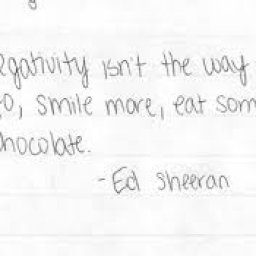 egativity isn't the way
o, smile more, eat som
hocolate.
- Ed Sheeran